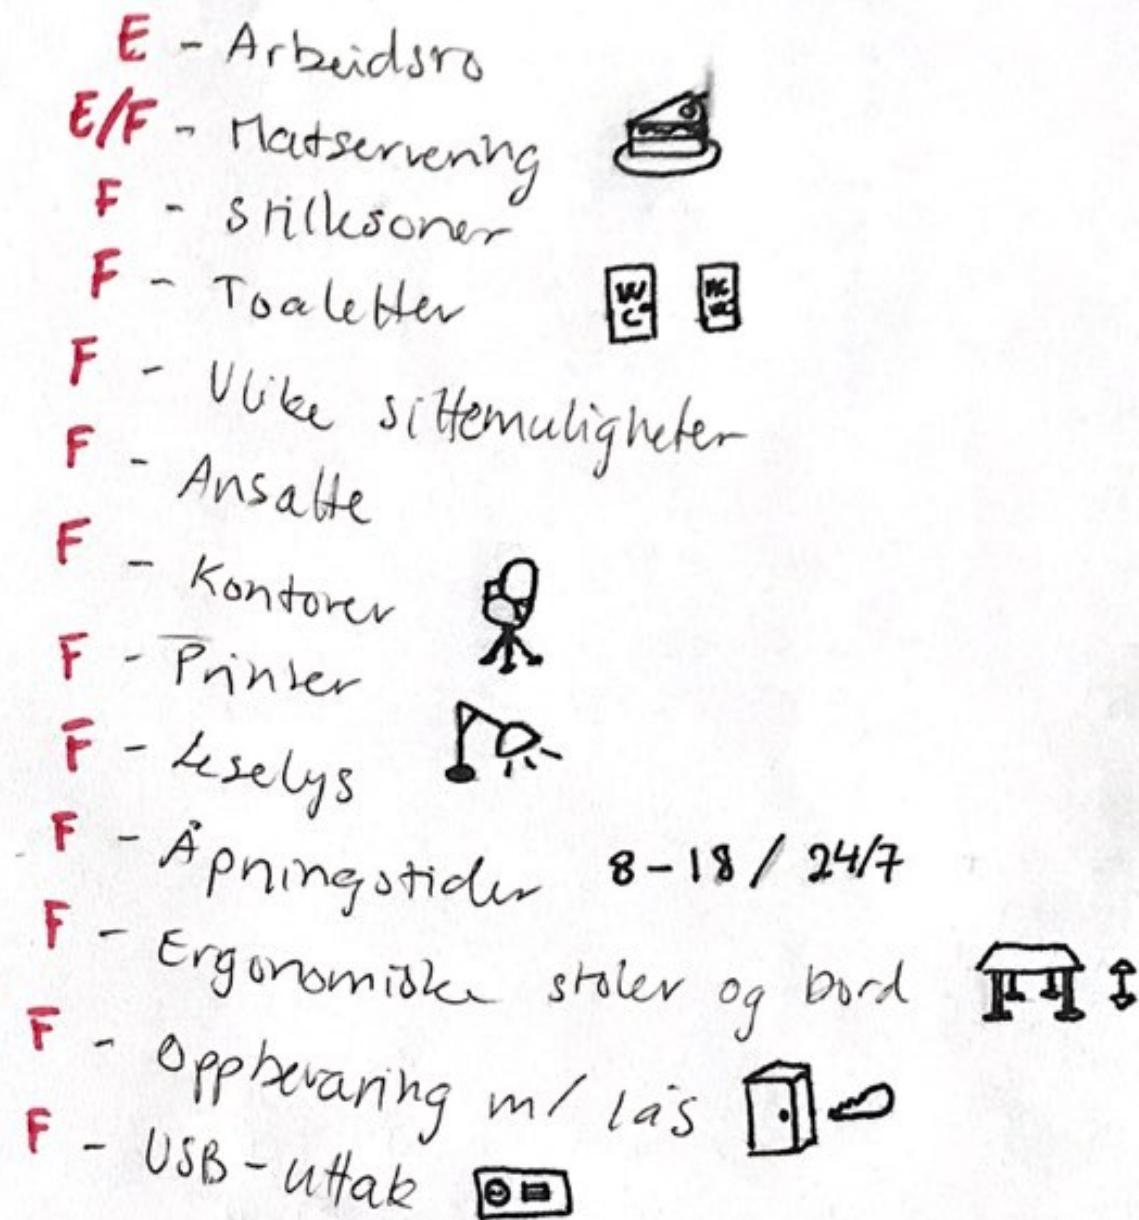 E - Arbeidsro
E/F - Matservering
F - Stillesoner
F - Toaletter WC HC WC
F - Ulike sittemuligheter
F - Ansatte
F - Kontorer
F - Printer
F - Leselys
F - Åpningstider 8-18 / 24/7
F - Ergonomiske stoler og bord
F - Oppbevaring m/ lås
F - USB-uttak